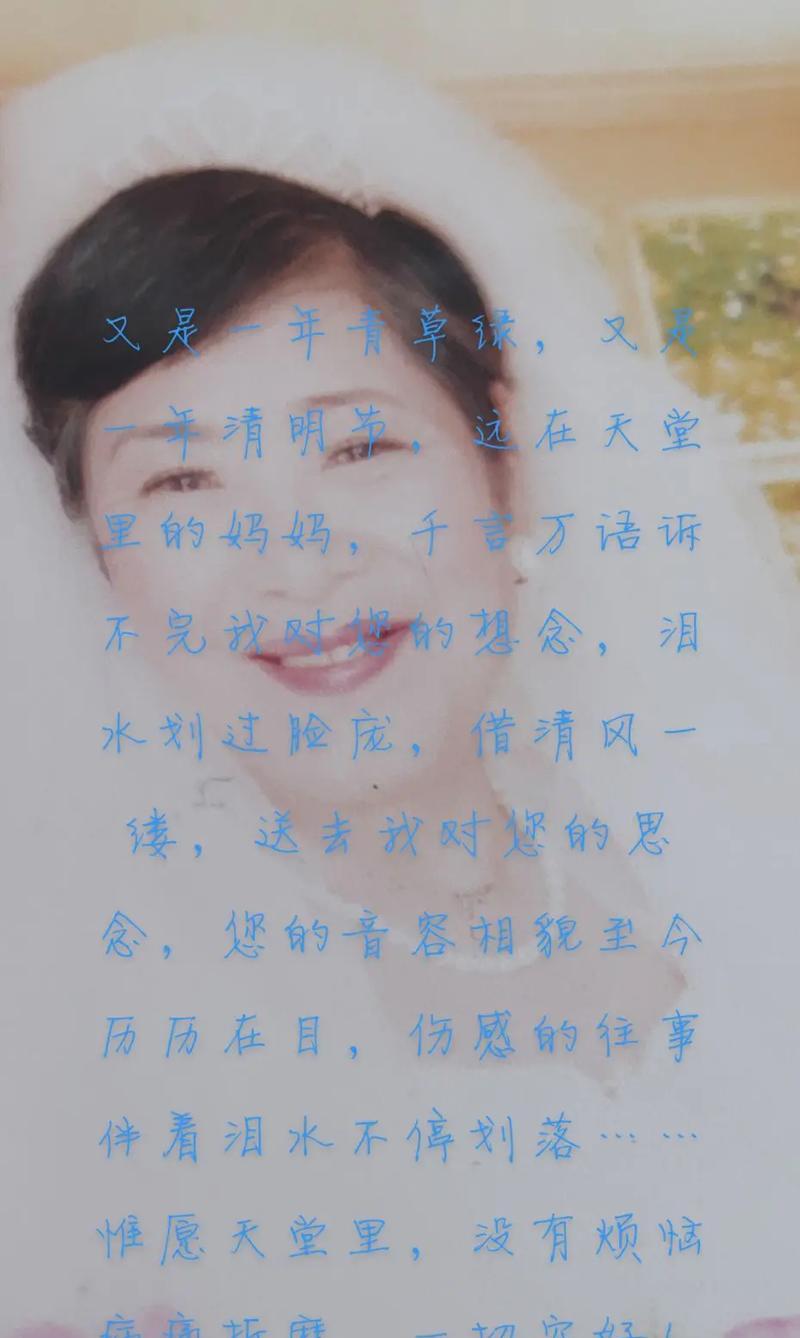 又是一年青草绿，又是
一年清明节，远在天堂
里的妈妈，千言万语诉
不完我对您的想念，泪
水划过脸庞，借清风一
缕，送去我对您的思
念，您的音容相貌至今
历历在目，伤感的往事
伴着泪水不停划落……
惟愿天堂里，没有烦恼
病痛折磨，一切安好！